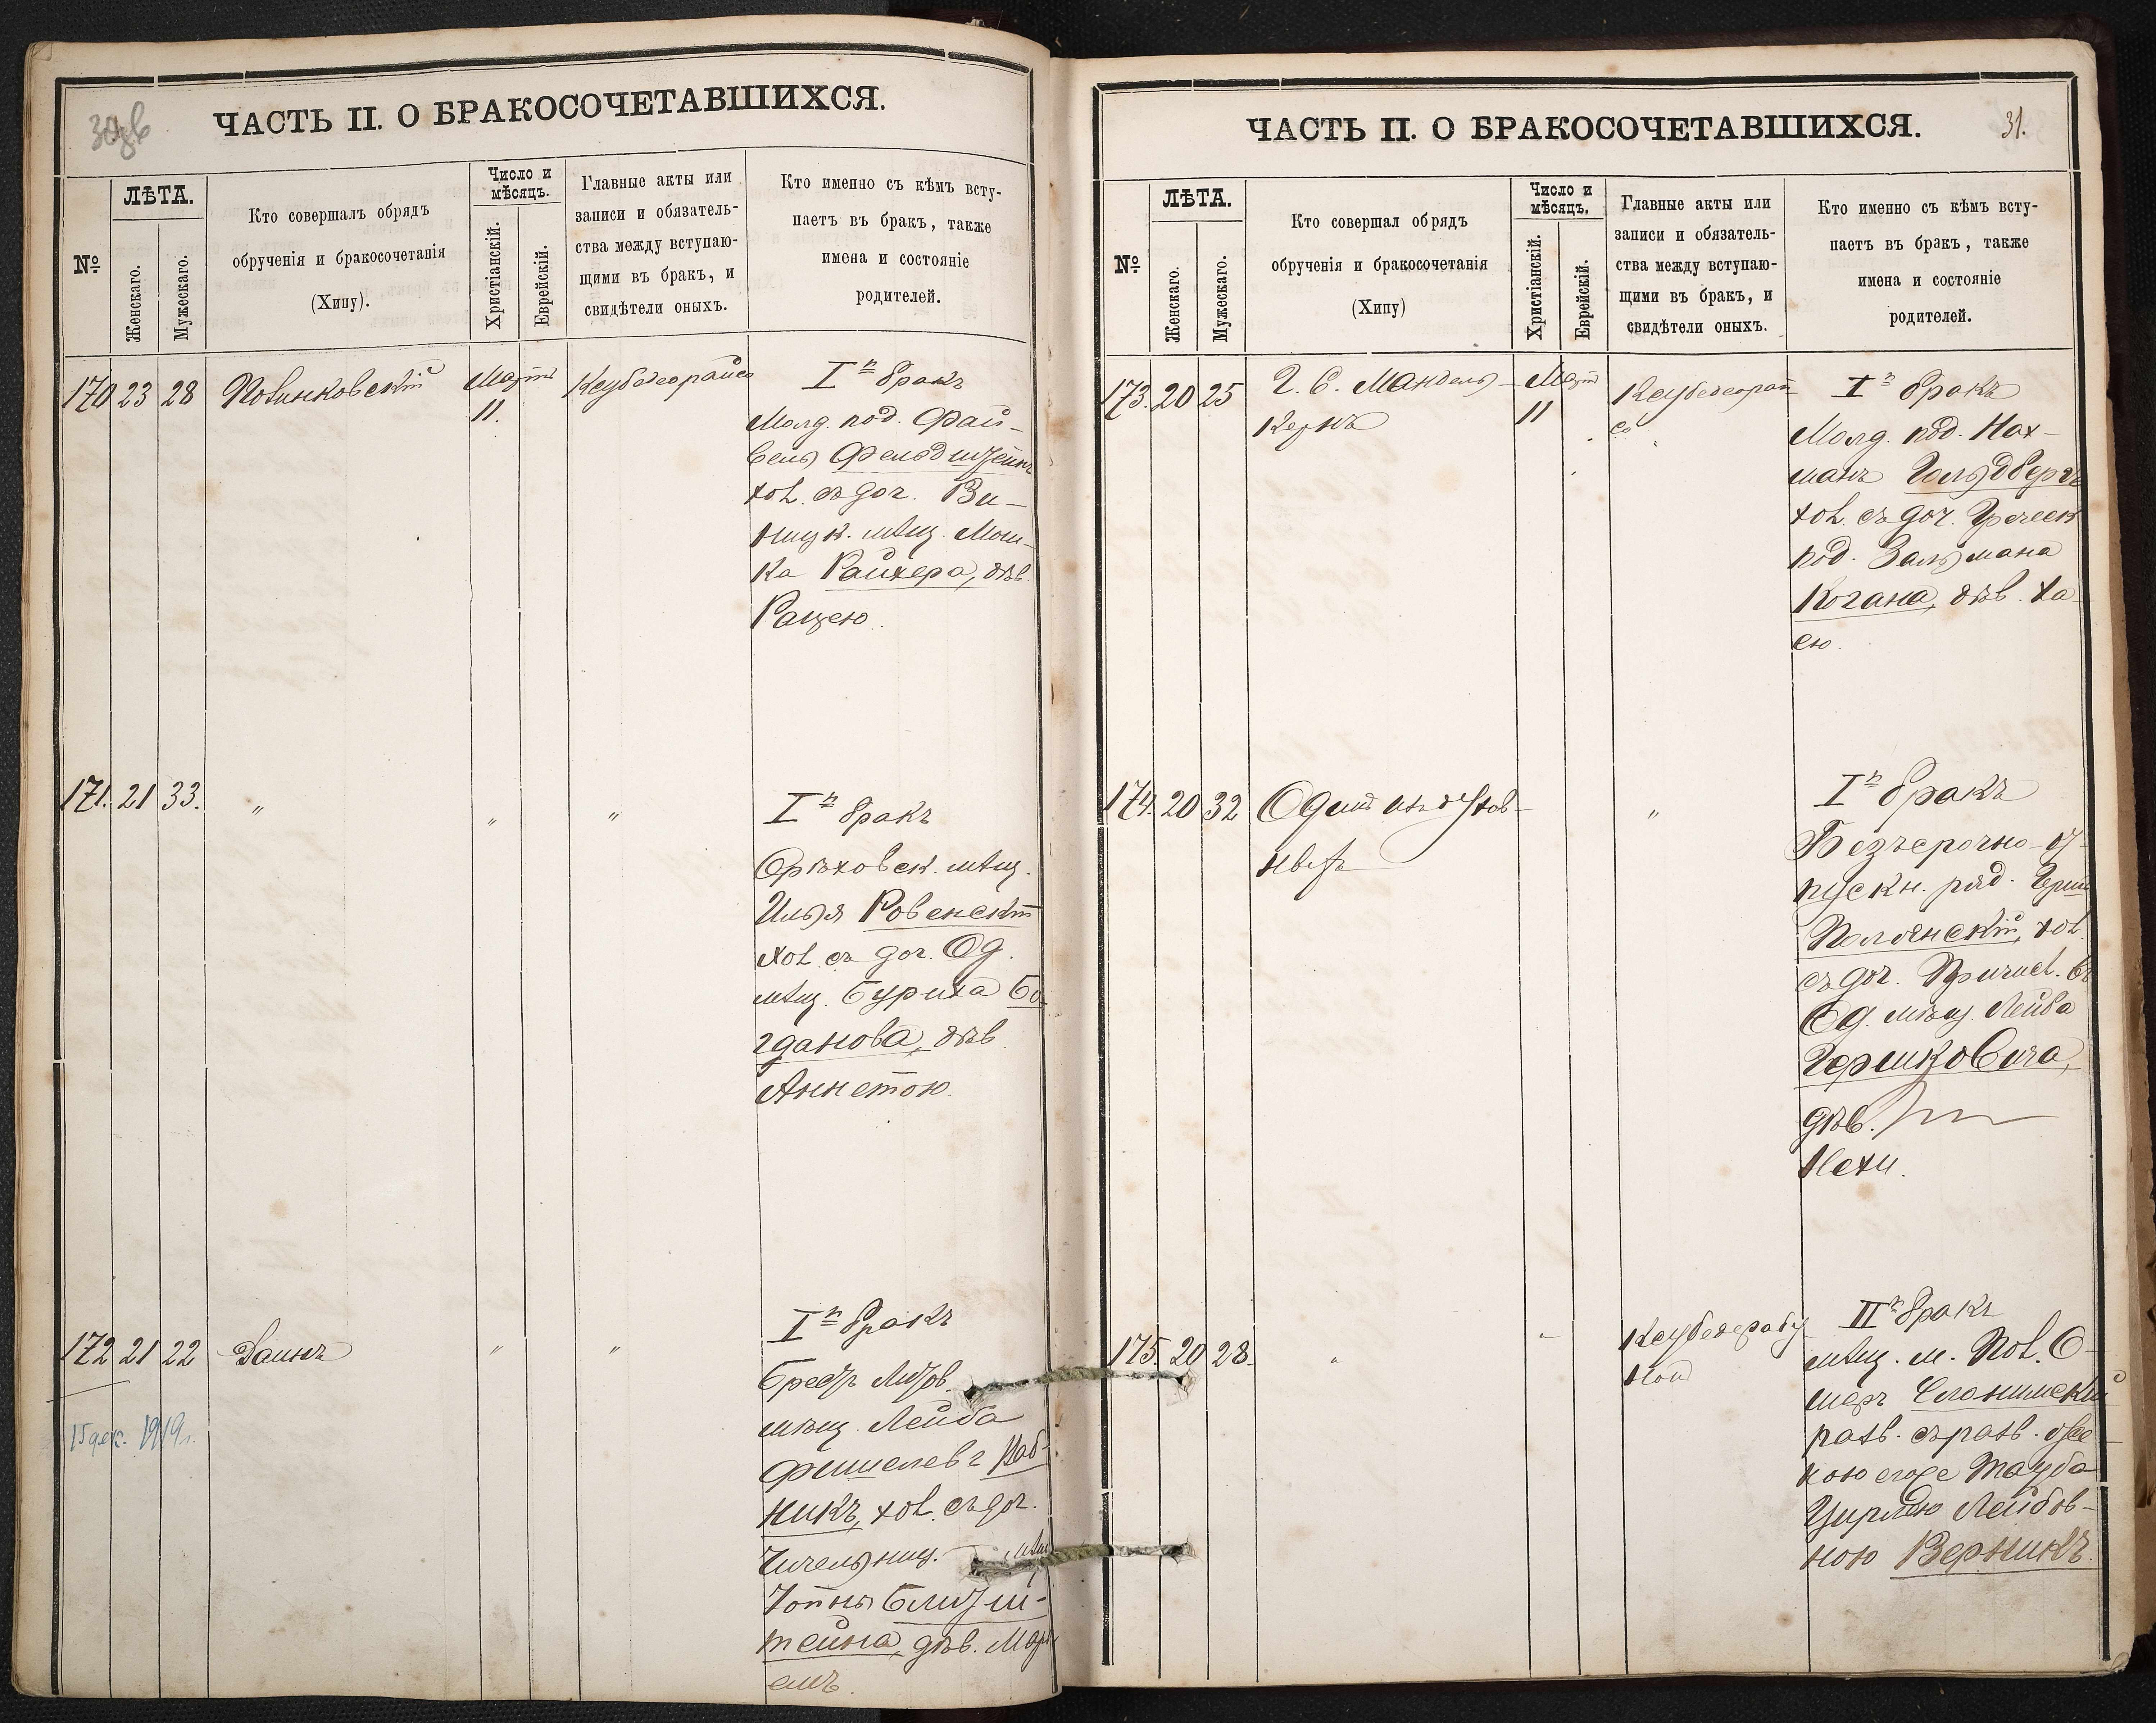 30об
ЧАСТЬ II. О БРАКОСОЧЕТАВШИХСЯ.
№
ЛѢТА.
Женскаго.
Мужескаго.
Кто совершалъ обрядъ
обрученія и бракосочетанія
(Хипу).
Число и
мѣсяцъ.
Христіанскій.
Еврейскій.
Главные акты или
записи и обязатель-
ства между вступаю-
щими въ бракъ, и
свидѣтели оныхъ.
Кто именно съ кѣмъ всту-
паетъ въ бракъ, также
имена и состояніе
родителей.
170 23 28
Мартъ
11.
I й бракъ
Молд. под. Фай-
вель Фельдштейнъ
хол. съ доч. Ви-
ницк. мѣщ. Мош-
ка Райхера, дѣв.
171. 21 33. " " "
I й бракъ
Орѣховск. мѣщ.
Илья Ровенскій
хол. съ доч. Од.
мѣщ. Буриха Бо-
гданова, дѣв.
Аннетою.
172 21 22 " "
15 дек. 1919г.
I й бракъ
Брестъ Литов.
мѣщ. Лейба
хол. съ доч.
мѣщ
дѣв.
ЧАСТЬ II. О БРАКОСОЧЕТАВШИХСЯ.
31.
№
ЛѢТА.
Женскаго.
Мужескаго.
Кто совершал обрядъ
обрученія и бракосочетанія
(Хипу)
Число и
мѣсяцъ.
Христіанскій.
Еврейскій.
Главные акты или
записи и обязатель-
ства между вступаю-
щими въ бракъ, и
свидѣтели оныхъ.
Кто именно съ кѣмъ всту-
паетъ въ бракъ, также
имена и состояніе
родителей.
173. 20 25
Мандель-
кернъ
Мартъ
11
I й бракъ
Молд. под. Нах-
манъ Гольдбергъ
хол. съ доч. Греческ
под. Зальмана
Когана, дѣв. Ха-
ею.
174. 20 32 "
I й бракъ
Безсрочно-от-
пускн. ряд. Герш
Полянскій, хол.
съ доч. Причисл. къ
Од. мѣщ. Лейба
Гершковича,
дѣв.
Нехи.
175. 20 28. " "
II й бракъ
мѣщ. м. Пол. О-
шеръ Слонимскій
разв. съ разв.
Тауба
Лейбов-
ною Верникъ.